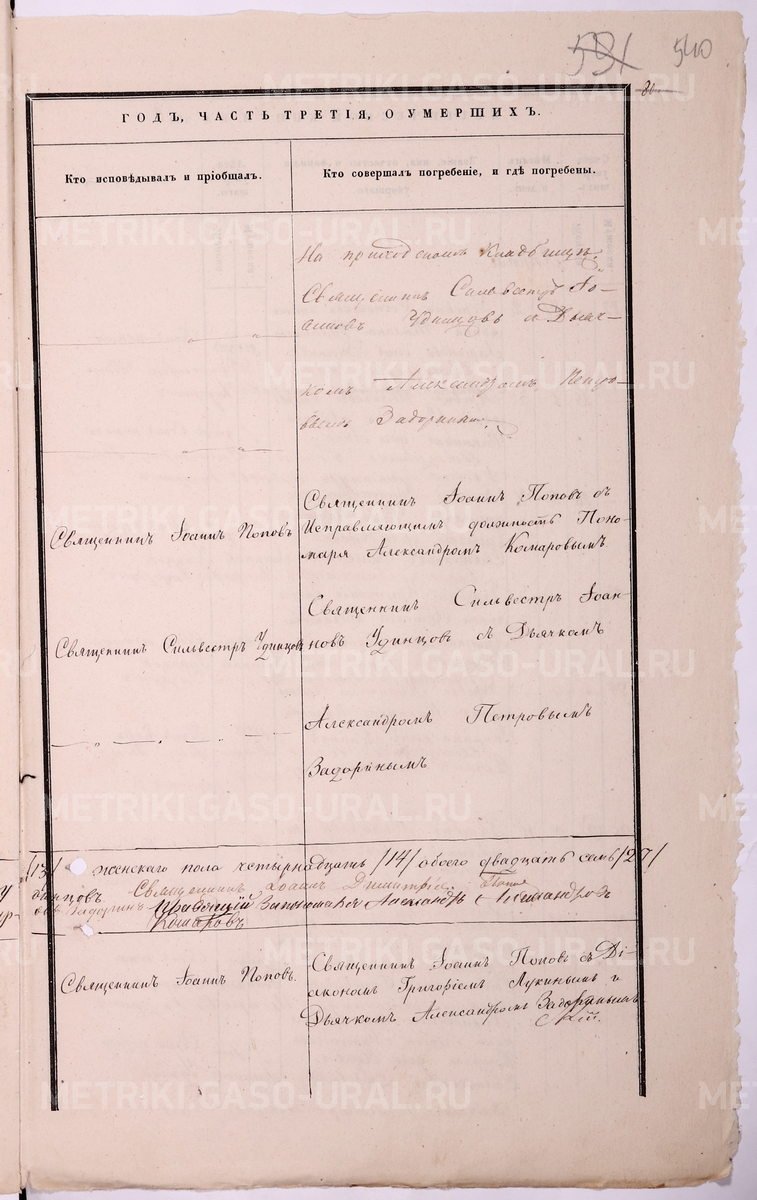 531 540
81
ГОДЪ, ЧАСТЬ ТРЕТІЯ, О УМЕРШИХЪ.
Кто исповѣдывалъ и пріобщалъ.
Кто совершалъ погребеніе, и гдѣ погребены.
На приходскомъ кладбищѣ.
Священникъ Сильвестръ Іо-
анновъ Удинцовъ съ Дьяч-
комъ Александромъ Петро-
вымъ Задоринымъ.
Священникъ Іоаннъ Поповъ съ
Священникъ Іоаннъ Поповъ
Исправляющимъ должность Поно-
маря Александромъ Комаровымъ
Священникъ Сильвестръ Іоан-
Священникъ Сильвестръ Удинцовъ
новъ Удинцовъ съ Дьячкомъ
Александромъ Петровымъ
Задоринымъ
/13/ женскаго пола четырнадцать /14/ обоего двадцать семь /27/
динцовъ Священникъ Іоаннъ Димитріевъ Поповъ
Задоринъ Александръ Александровъ
Комаровъ
Священникъ Іоаннъ Поповъ съ Ді-
Священникъ Іоаннъ Поповъ.
акономъ Григоріемъ Лукинымъ и
Дьячкомъ Александромъ Задоринымъ
METRIKI.GASO-URAL.RU